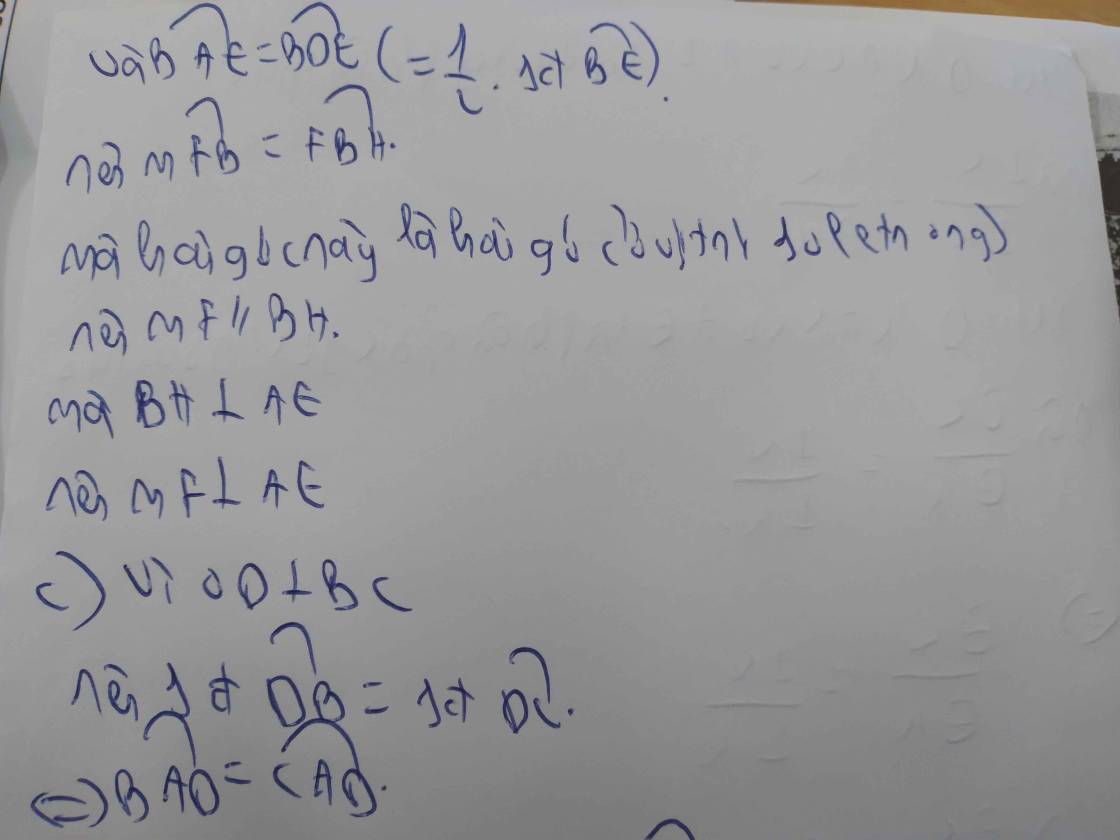 và BAE = BDE (= 1/2 . sđ BE).
nên MFB = FBH.
mà hai góc này là hai góc (ở vị trí so le trong)
nên MF // BH.
mà BH ⊥ AE
nên MF ⊥ AE
c) Vì OD ⊥ BC
nên sđ DB = sđ DC.
(=) BAD = CAD.